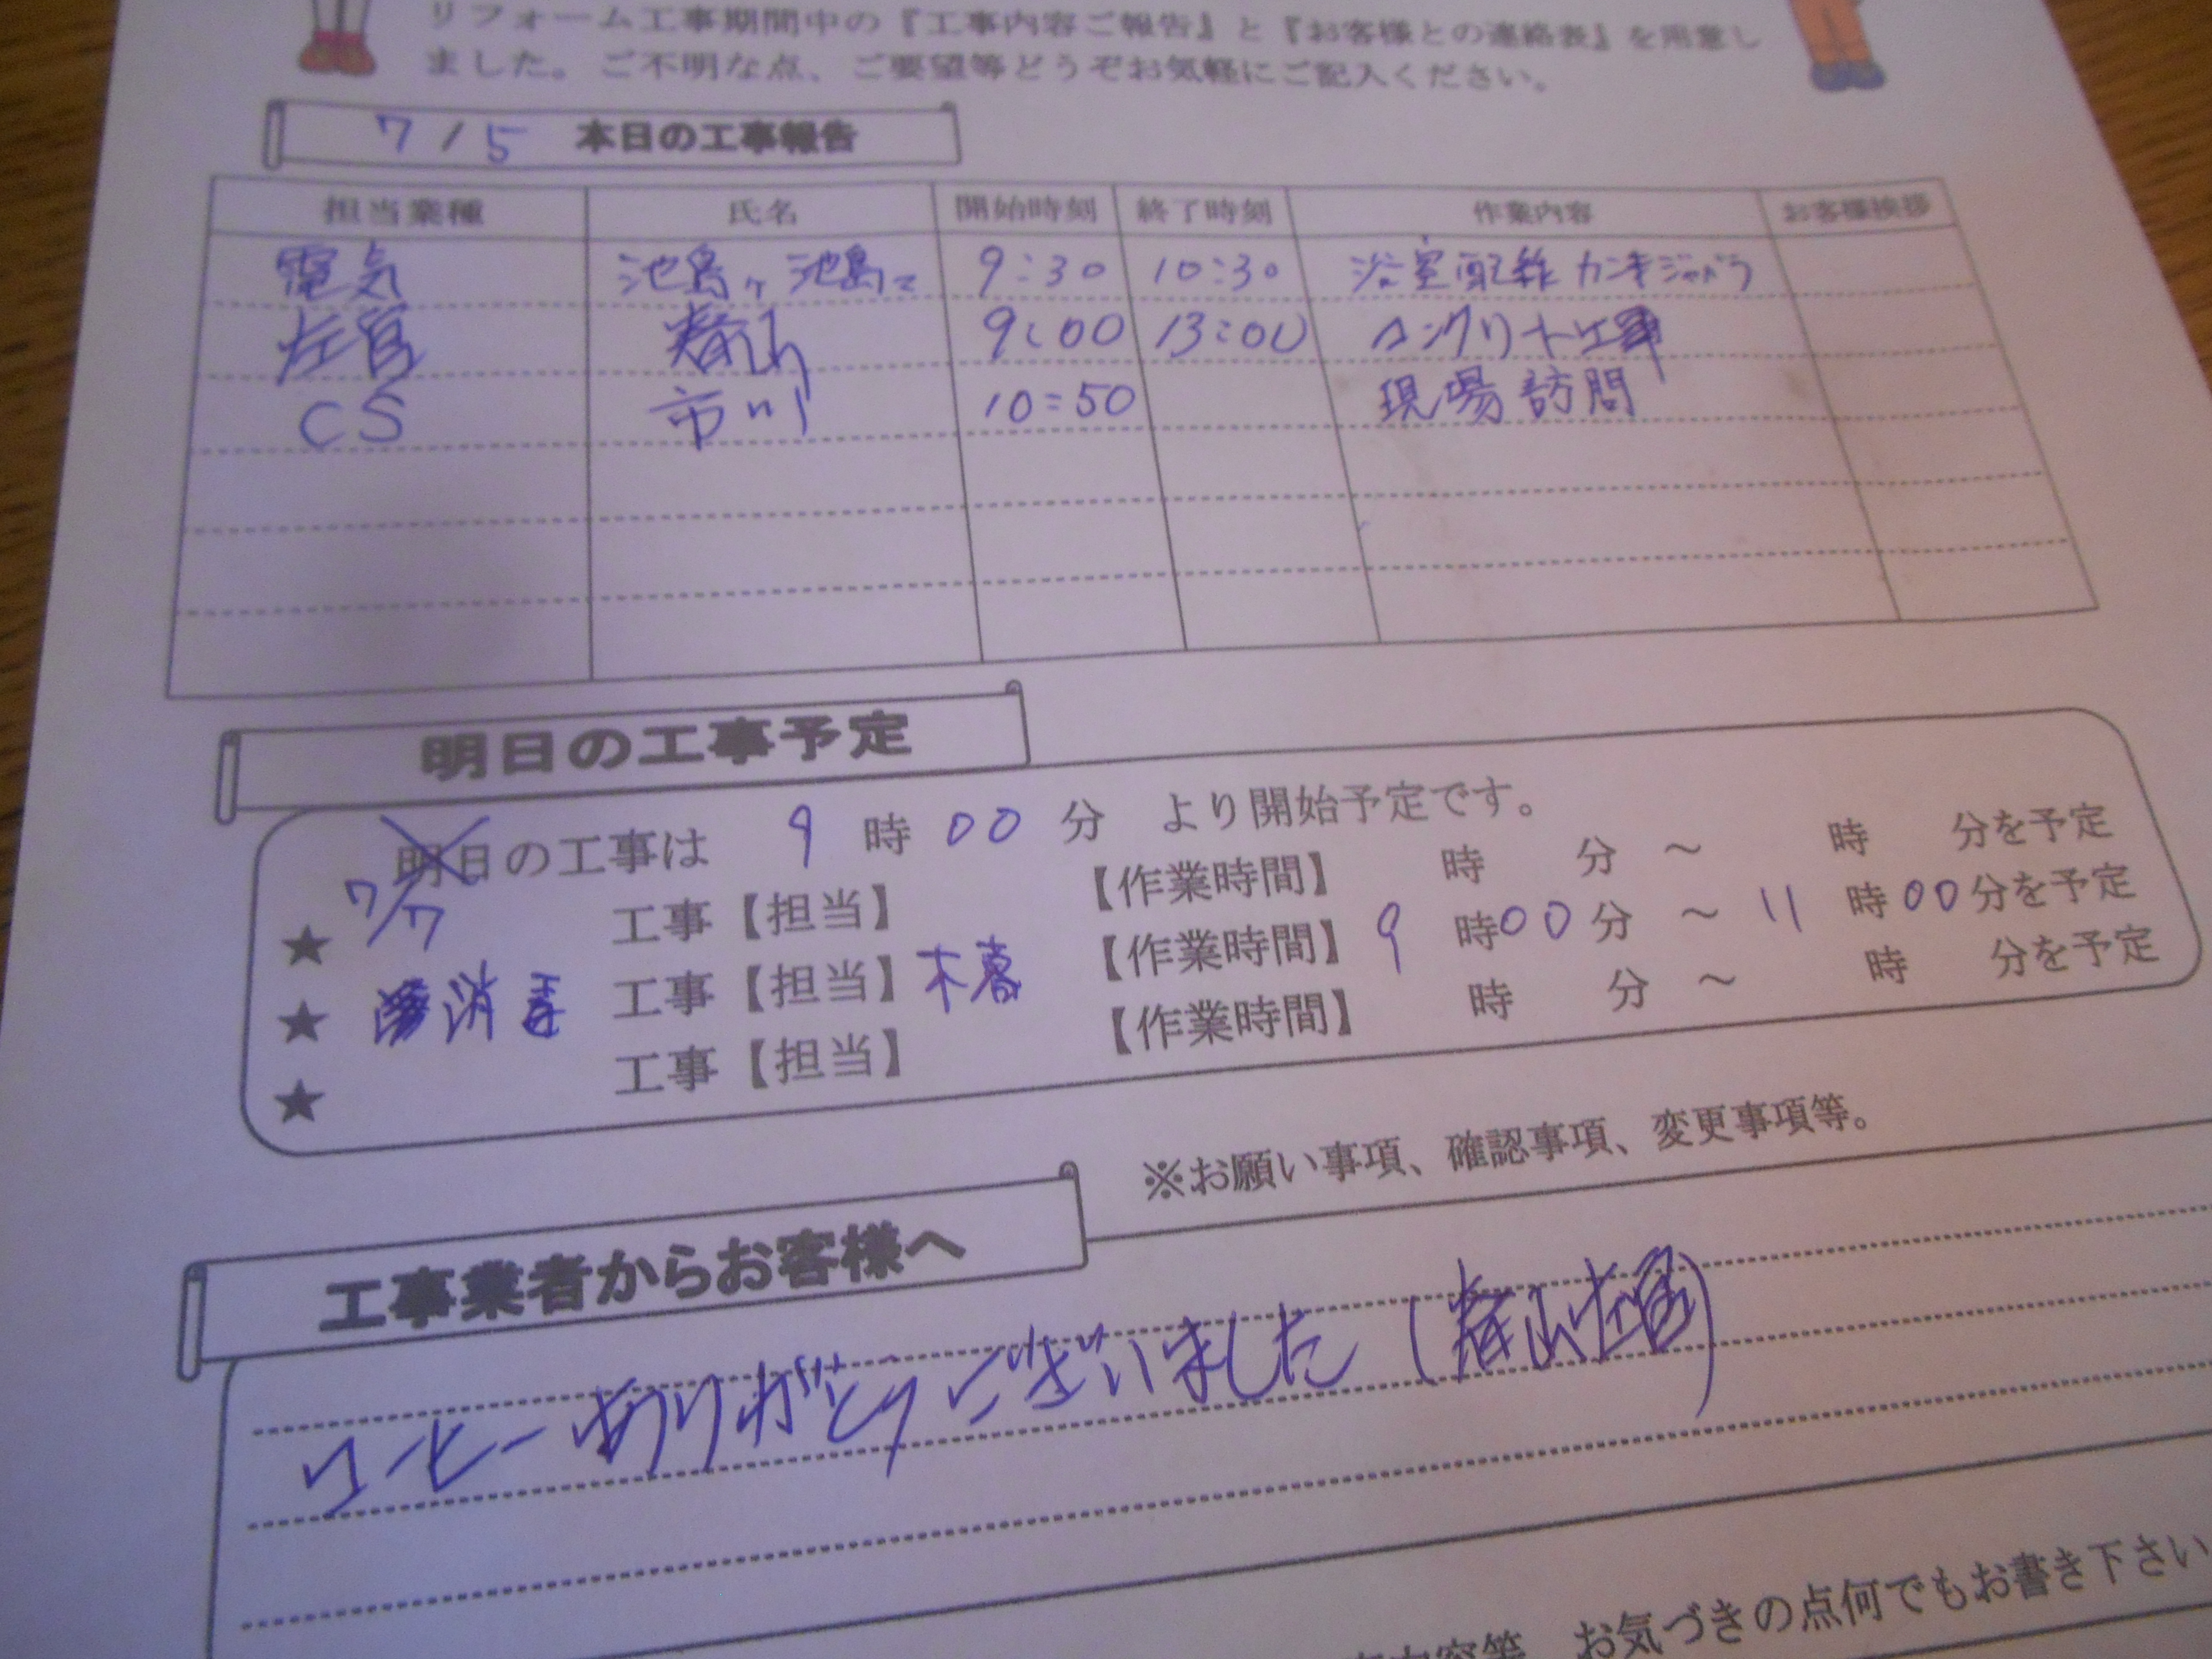 リフォーム工事期間中の『工事内容ご報告』と『お客様との連絡表』を用意し
ました。ご不明な点、ご要望等どうぞお気軽にご記入ください。
7/5 本日の工事報告
担当業種 氏名 開始時刻 終了時刻 作業内容 お客様挨拶
電気 池島ケ 池島マ 9:30 10:30 浴室配線 カンキジャバラ
左官 春山 9:00 13:00 コンクリート工事
CS 市川 10:50 現場訪問
明日の工事予定
明日の工事は 9時00分 より開始予定です。
7/7
★ 工事【担当】 【作業時間】 時 分 ～ 時 分を予定
★ 消毒 工事【担当】木暮 【作業時間】 9時00分 ～ 11時00分を予定
★ 工事【担当】 【作業時間】 時 分 ～ 時 分を予定
※お願い事項、確認事項、変更事項等。
工事業者からお客様へ
コーヒーありがとうございました(春山左官)
お気づきの点何でもお書き下さい